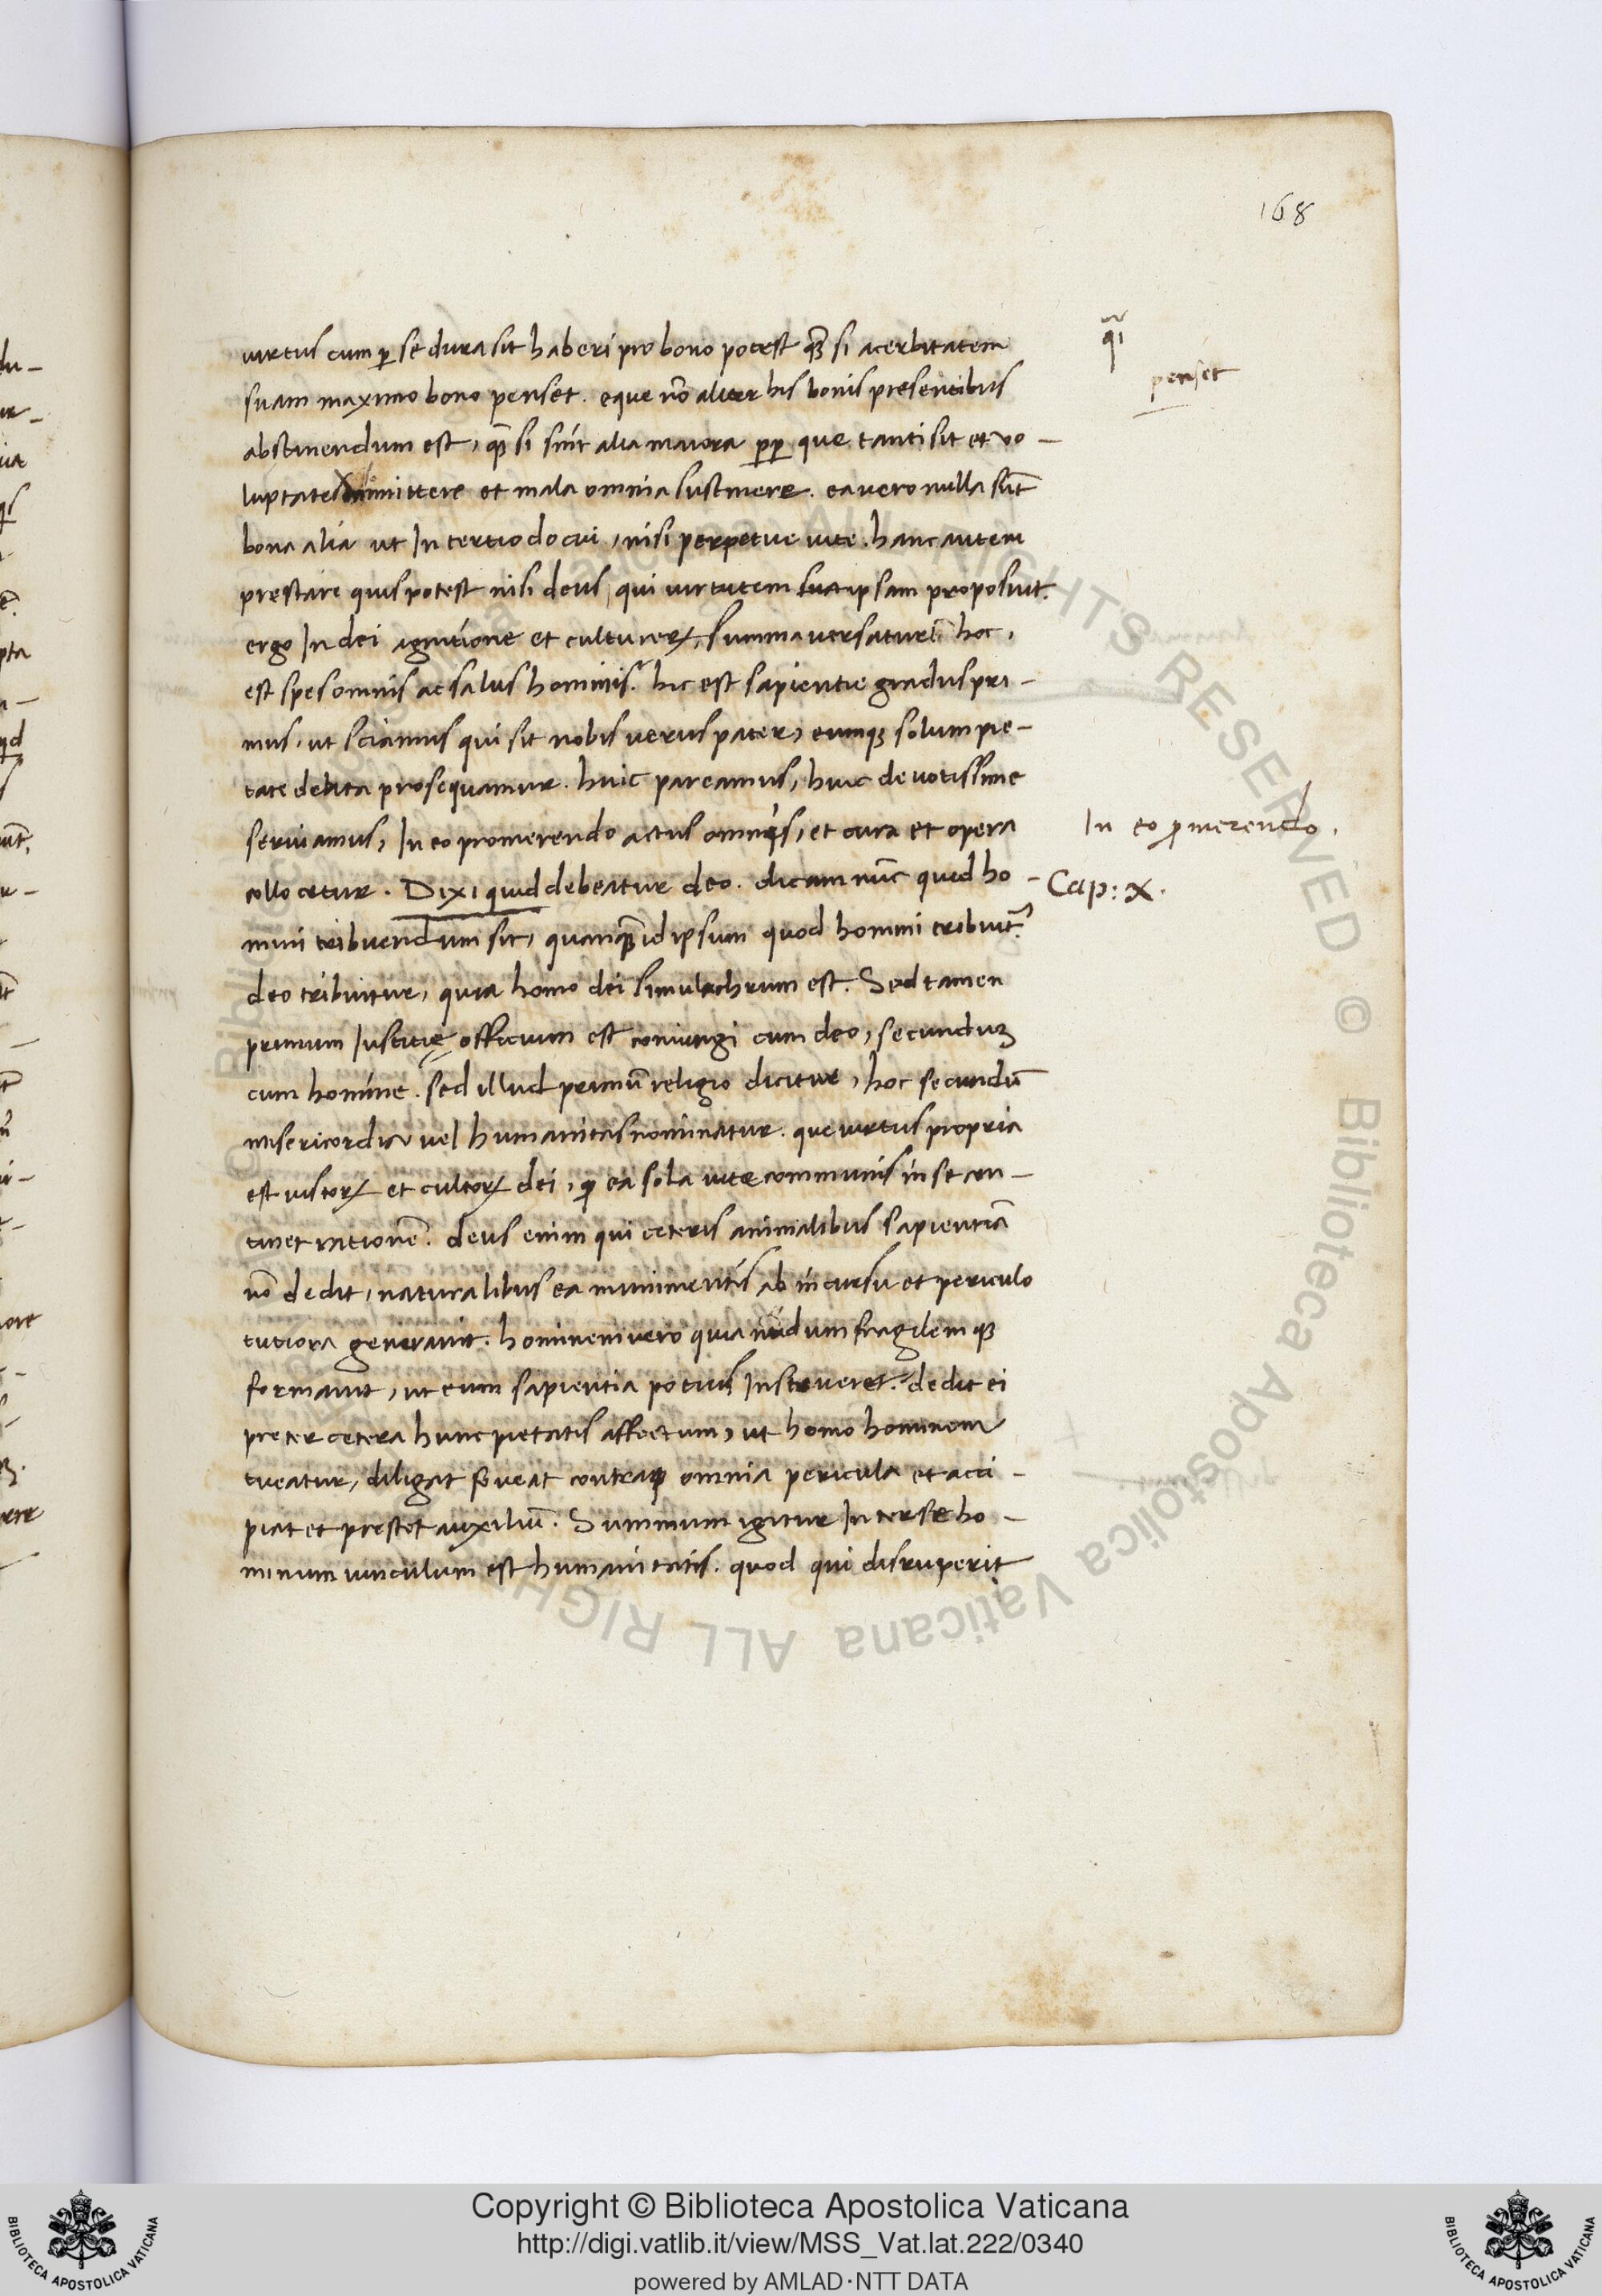 168
virtus cum ꝑ se dura sit haberi pro bono potest qᷓꝫ si acerbitatem
suam maximo bono penset. eque nō aliter his bonis presentibus
abstinendum est, qᷓꝫ si sint alia maiora ꝓpꝑ que tanti sit et vo-
luptates omittere et mala omnia sustinere. ea vero nulla sūt
bona alia ut In tertio docui, nisi perpetue vite. hanc autem
prestare quis potest nisi deus, qui virtutem sua ipsam proposuit.
ergo In dei agnitione et cultu reꝝ summa versatur. ī hoc,
est spes omnis ac salus hominis. hic est sapientie gradus pri-
mus, ut sciamus qui sit nobis verus pater, eumqꝫ solum pie-
tate debita prosequamur. huic pareamus, huic devotissime
serviamus, In eo promerendo actus omnis, et cura et opera
collocetur. Dixi quid debeatur deo. dicam nūc quid ho-
mini tribuendum sit, quanqᷓꝫ id ipsum quod homini tribuit᷑
deo tribuitur, quia homo dei simulachrum est. Sed tamen
primum Iustitię officium est coniungi cum deo, secunduꝫ
cum homine. sed illud primū religio dicitur, hoc secundū
misericordia vel humanitas nominatur. que virtus propria
est iustoꝝ et cultoꝝ dei, ꝙ ea sola vite communis in se con-
tinet rationē. deus enim qui ceteris animalibus sapientiā
nō dedit, naturalibus ea munimentis ab incursu et periculo
tutiora generavit. hominem vero quia nudum fragilemqꝫ
formavit, ut eum sapientia potius Instrueret. dedit ei
preter cetera hunc pietatis affectum, ut homo hominem
tueatur, diligat foveat contraqꝫ omnia pericula et acci-
piat et prestet auxiliū. Summum igitur Inter se ho-
minum vinculum est humanitatis. quod qui disruperit
penset
In eo ꝓmerendo.
Cap: X.
Copyright © Biblioteca Apostolica Vaticana
http://digi.vatlib.it/view/MSS_Vat.lat.222/0340
powered by AMLAD·NTT DATA
BIBLIOTECA APOSTOLICA VATICANA
BIBLIOTECA APOSTOLICA VATICANA